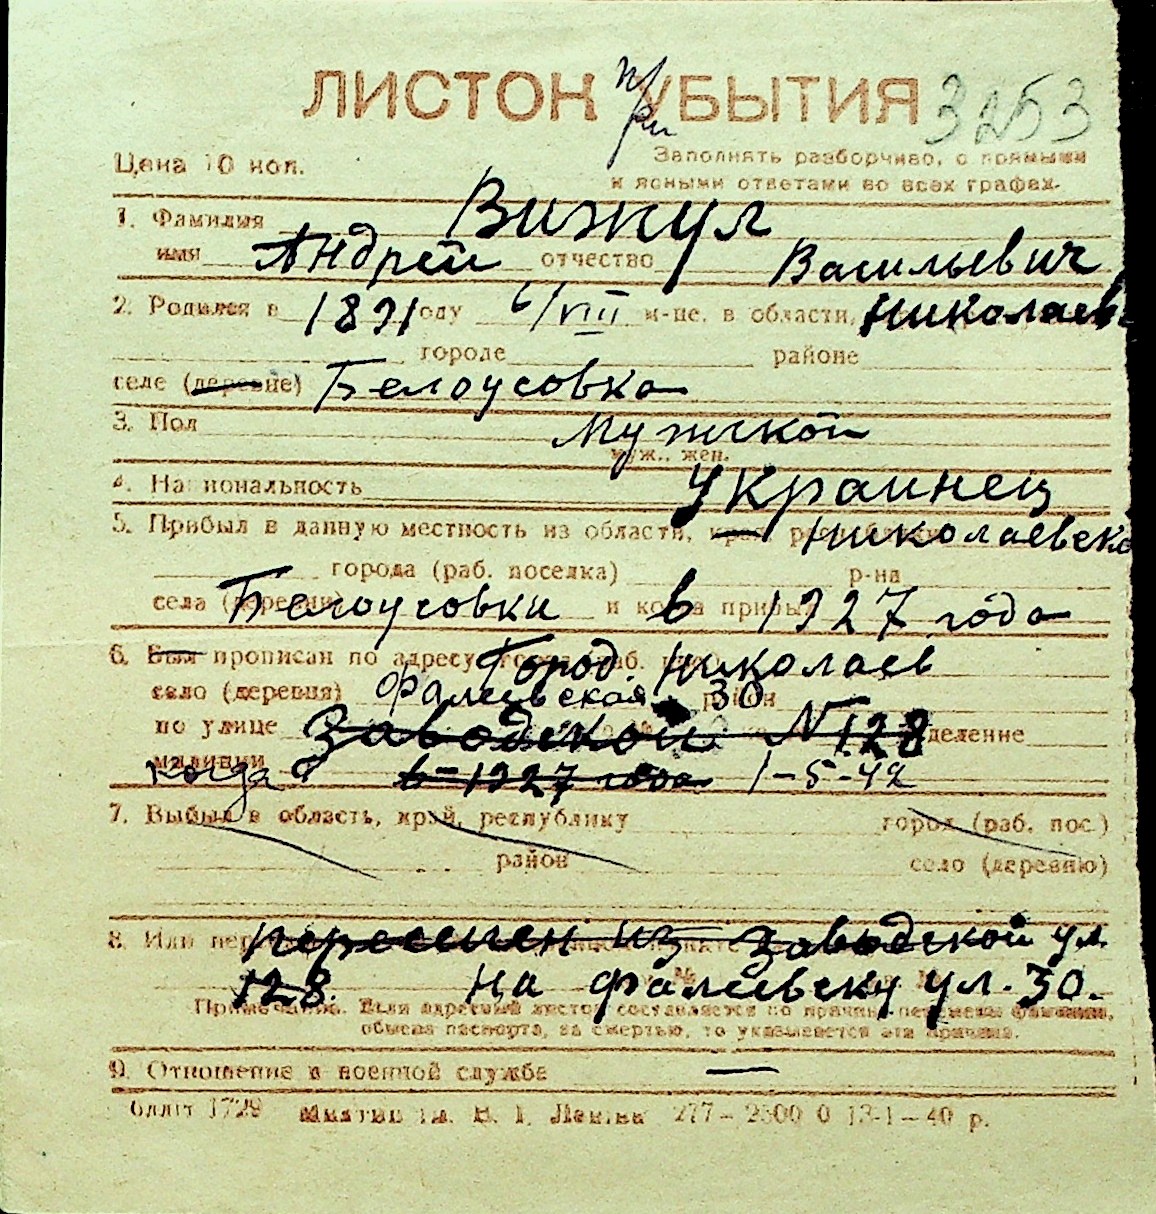 ЛИСТОК УБЫТИЯ 3253
при
Цена 10 коп. Заполнять разборчиво, с прямыми
и ясными ответами во всех графах.
1. Фамилия Вижул
имя Андрей отчество Васильевич
2. Родился в 1891 году 6/VIII м-це, в области, Николаевс
городе районе
селе (деревне) Белоусовка
3. Пол Мужской
муж., жен.
4. Национальность Украинец
5. Прибыл в данную местность из области, края, Николаевско
города (раб. поселка) р-на
села (деревни) Белоусовки и когда прибыл в 1927 года
6. Был прописан по адресу: Город Николаев
село (деревня) Фалеевская 30 район
по улице Заводской № 128 отделение
милиции когда в 1927 года 1-5-42
7. Выбыл в область, край, республику город (раб. пос.)
район село (деревню)
8. Или переселен из Заводской ул.
128. на Фалеевску ул. 30.
Примечание. Если адресный листок составляется по причине перемены фамилии,
обмена паспорта, за смертью, то указывается эта причина.
9. Отношение к военной службе —
Облліт 1729 ім. В. І. Леніна 277 – 2500 0 13-1-40 р.